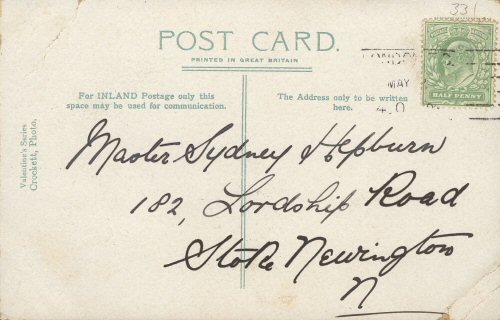 331
POST CARD.
PRINTED IN GREAT BRITAIN
LONDON
MAY
4.0
HALF PENNY
For INLAND Postage only this
space may be used for communication.
The Address only to be written
here.
Valentine's Series
Crockett, Photo.
Master Sydney Hepburn
182, Lordship Road
Stoke Newington
N